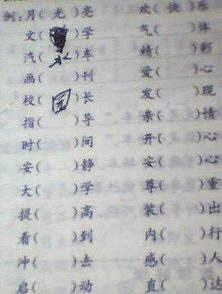 例:月(光)亮 欢(快)乐
文( )学 气( )体
汽(水)车 精( )彩
画( )刊 爱( )心
校(园)长 发( )现
指( )导 亲( )情
时( )间 开( )心
安( )静 安( )心
大( )学 尊( )重
提( )高 装( )出
看( )到 内( )行
冲( )去 感( )人
启( )动 直( )达